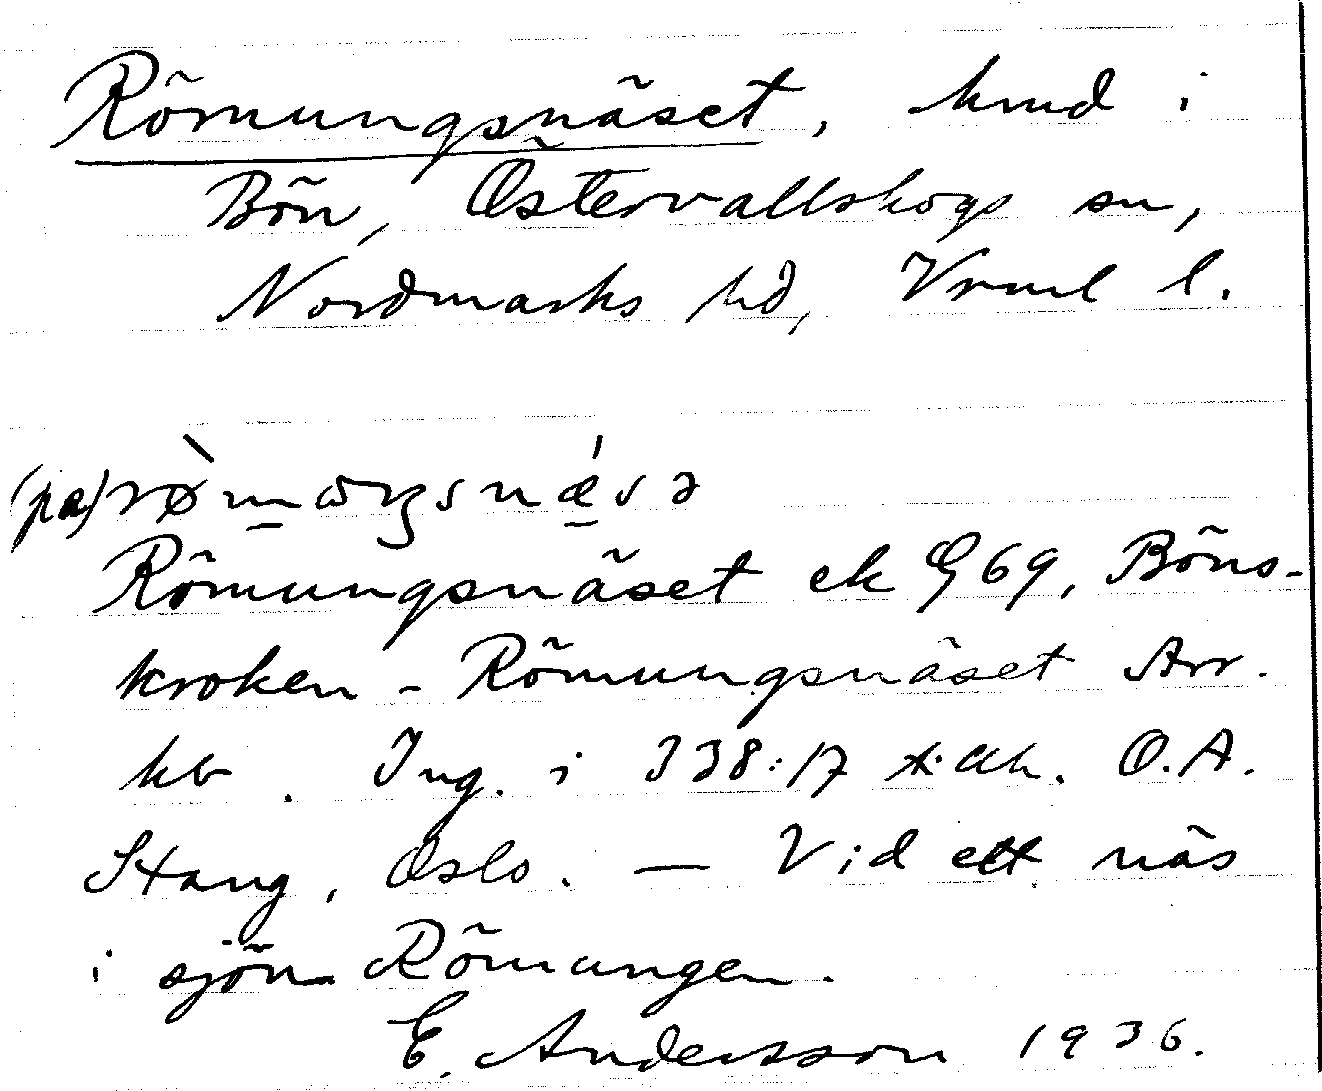 Römungsnäset, hmd i
Bön, Östervallskogs sn,
Nordmarks hd, Vrml l.
(pa) rø̀mɷŋsnǽsə
Römungsnäset ek G 69, Böns-
kroken - Römungsnäset Arr.
kb. Ing. i 338:17 O.A.
Stang, Oslo. — Vid ett näs
i sjön Römungen.
E. Andersson 1936.